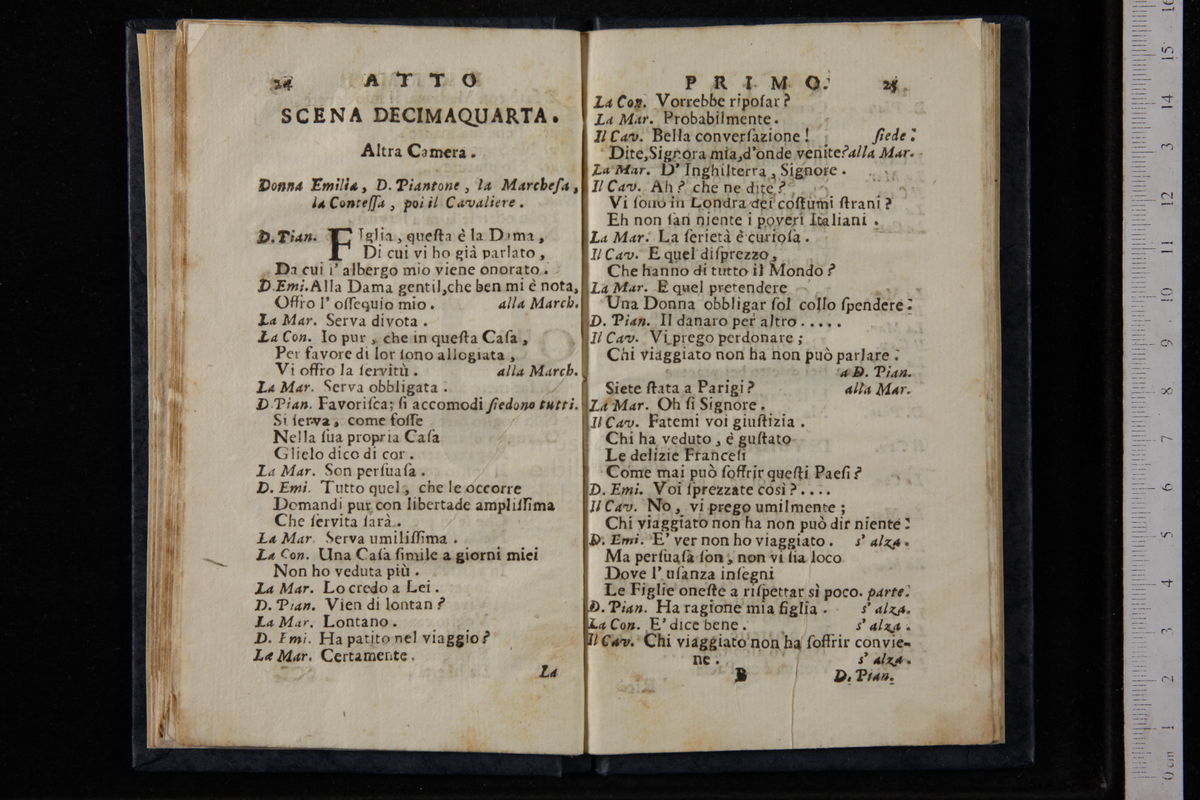 24 ATTO
SCENA DECIMAQUARTA.
Altra Camera.
Donna Emilia, D. Piantone, la Marcheſa,
la Conteſſa, poi il Cavaliere.
D. Pian. FIglia, queſta è la Dama,
Di cui vi ho già parlato,
Da cui l' albergo mio viene onorato.
D. Emi. Alla Dama gentil, che ben mi è nota,
Offro l' oſſequio mio. alla March.
La Mar. Serva divota.
La Con. Io pur, che in queſta Caſa,
Per favore di lor ſono allogiata,
Vi offro la ſervitù. alla March.
La Mar. Serva obbligata.
D. Pian. Favoriſca; ſi accomodi ſiedono tutti.
Si ſerva, come foſſe
Nella ſua propria Caſa
Glielo dico di cor.
La Mar. Son perſuaſa.
D. Emi. Tutto quel, che le occorre
Domandi pur con libertade ampliſſima
Che ſervita ſarà.
La Mar. Serva umiliſſima.
La Con. Una Caſa ſimile a giorni miei
Non ho veduta più.
La Mar. Lo credo a Lei.
D. Pian. Vien di lontan?
La Mar. Lontano.
D. Emi. Ha patito nel viaggio?
La Mar. Certamente.
La
PRIMO. 25
La Con. Vorrebbe ripoſar?
La Mar. Probabilmente.
Il Cav. Bella converſazione! ſiede:
Dite, Signora mia, d'onde venite? alla Mar.
La Mar. D' Inghilterra, Signore.
Il Cav. Ah? che ne dite?
Vi ſono in Londra dei coſtumi ſtrani?
Eh non ſan niente i poveri Italiani.
La Mar. La ſerietà è curioſa.
Il Cav. E quel diſprezzo,
Che hanno di tutto il Mondo?
La Mar. E quel pretendere
Una Donna obbligar ſol collo ſpendere:
D. Pian. Il danaro per altro.....
Il Cav. Vi prego perdonare;
Chi viaggiato non ha non può parlare:
a D. Pian.
Siete ſtata a Parigi? alla Mar.
La Mar. Oh ſi Signore.
Il Cav. Fatemi voi giuſtizia.
Chi ha veduto, è guſtato
Le delizie Franceſi
Come mai può ſoffrir queſti Paeſi?
D. Emi. Voi ſprezzate così?....
Il Cav. No, vi prego umilmente;
Chi viaggiato non ha non può dir niente:
D. Emi. E' ver non ho viaggiato. s' alza.
Ma perſuaſa ſon, non vi ſia loco
Dove l' uſanza inſegni
Le Figlie oneſte a riſpettar sì poco. parte.
D. Pian. Ha ragione mia figlia. s' alza.
La Con. E' dice bene. s' alza.
Il Cav. Chi viaggiato non ha ſoffrir convie-
ne. s' alza.
B D. Pian.
0 cm 1 2 3 4 5 6 7 8 9 10 11 12 13 14 15 16